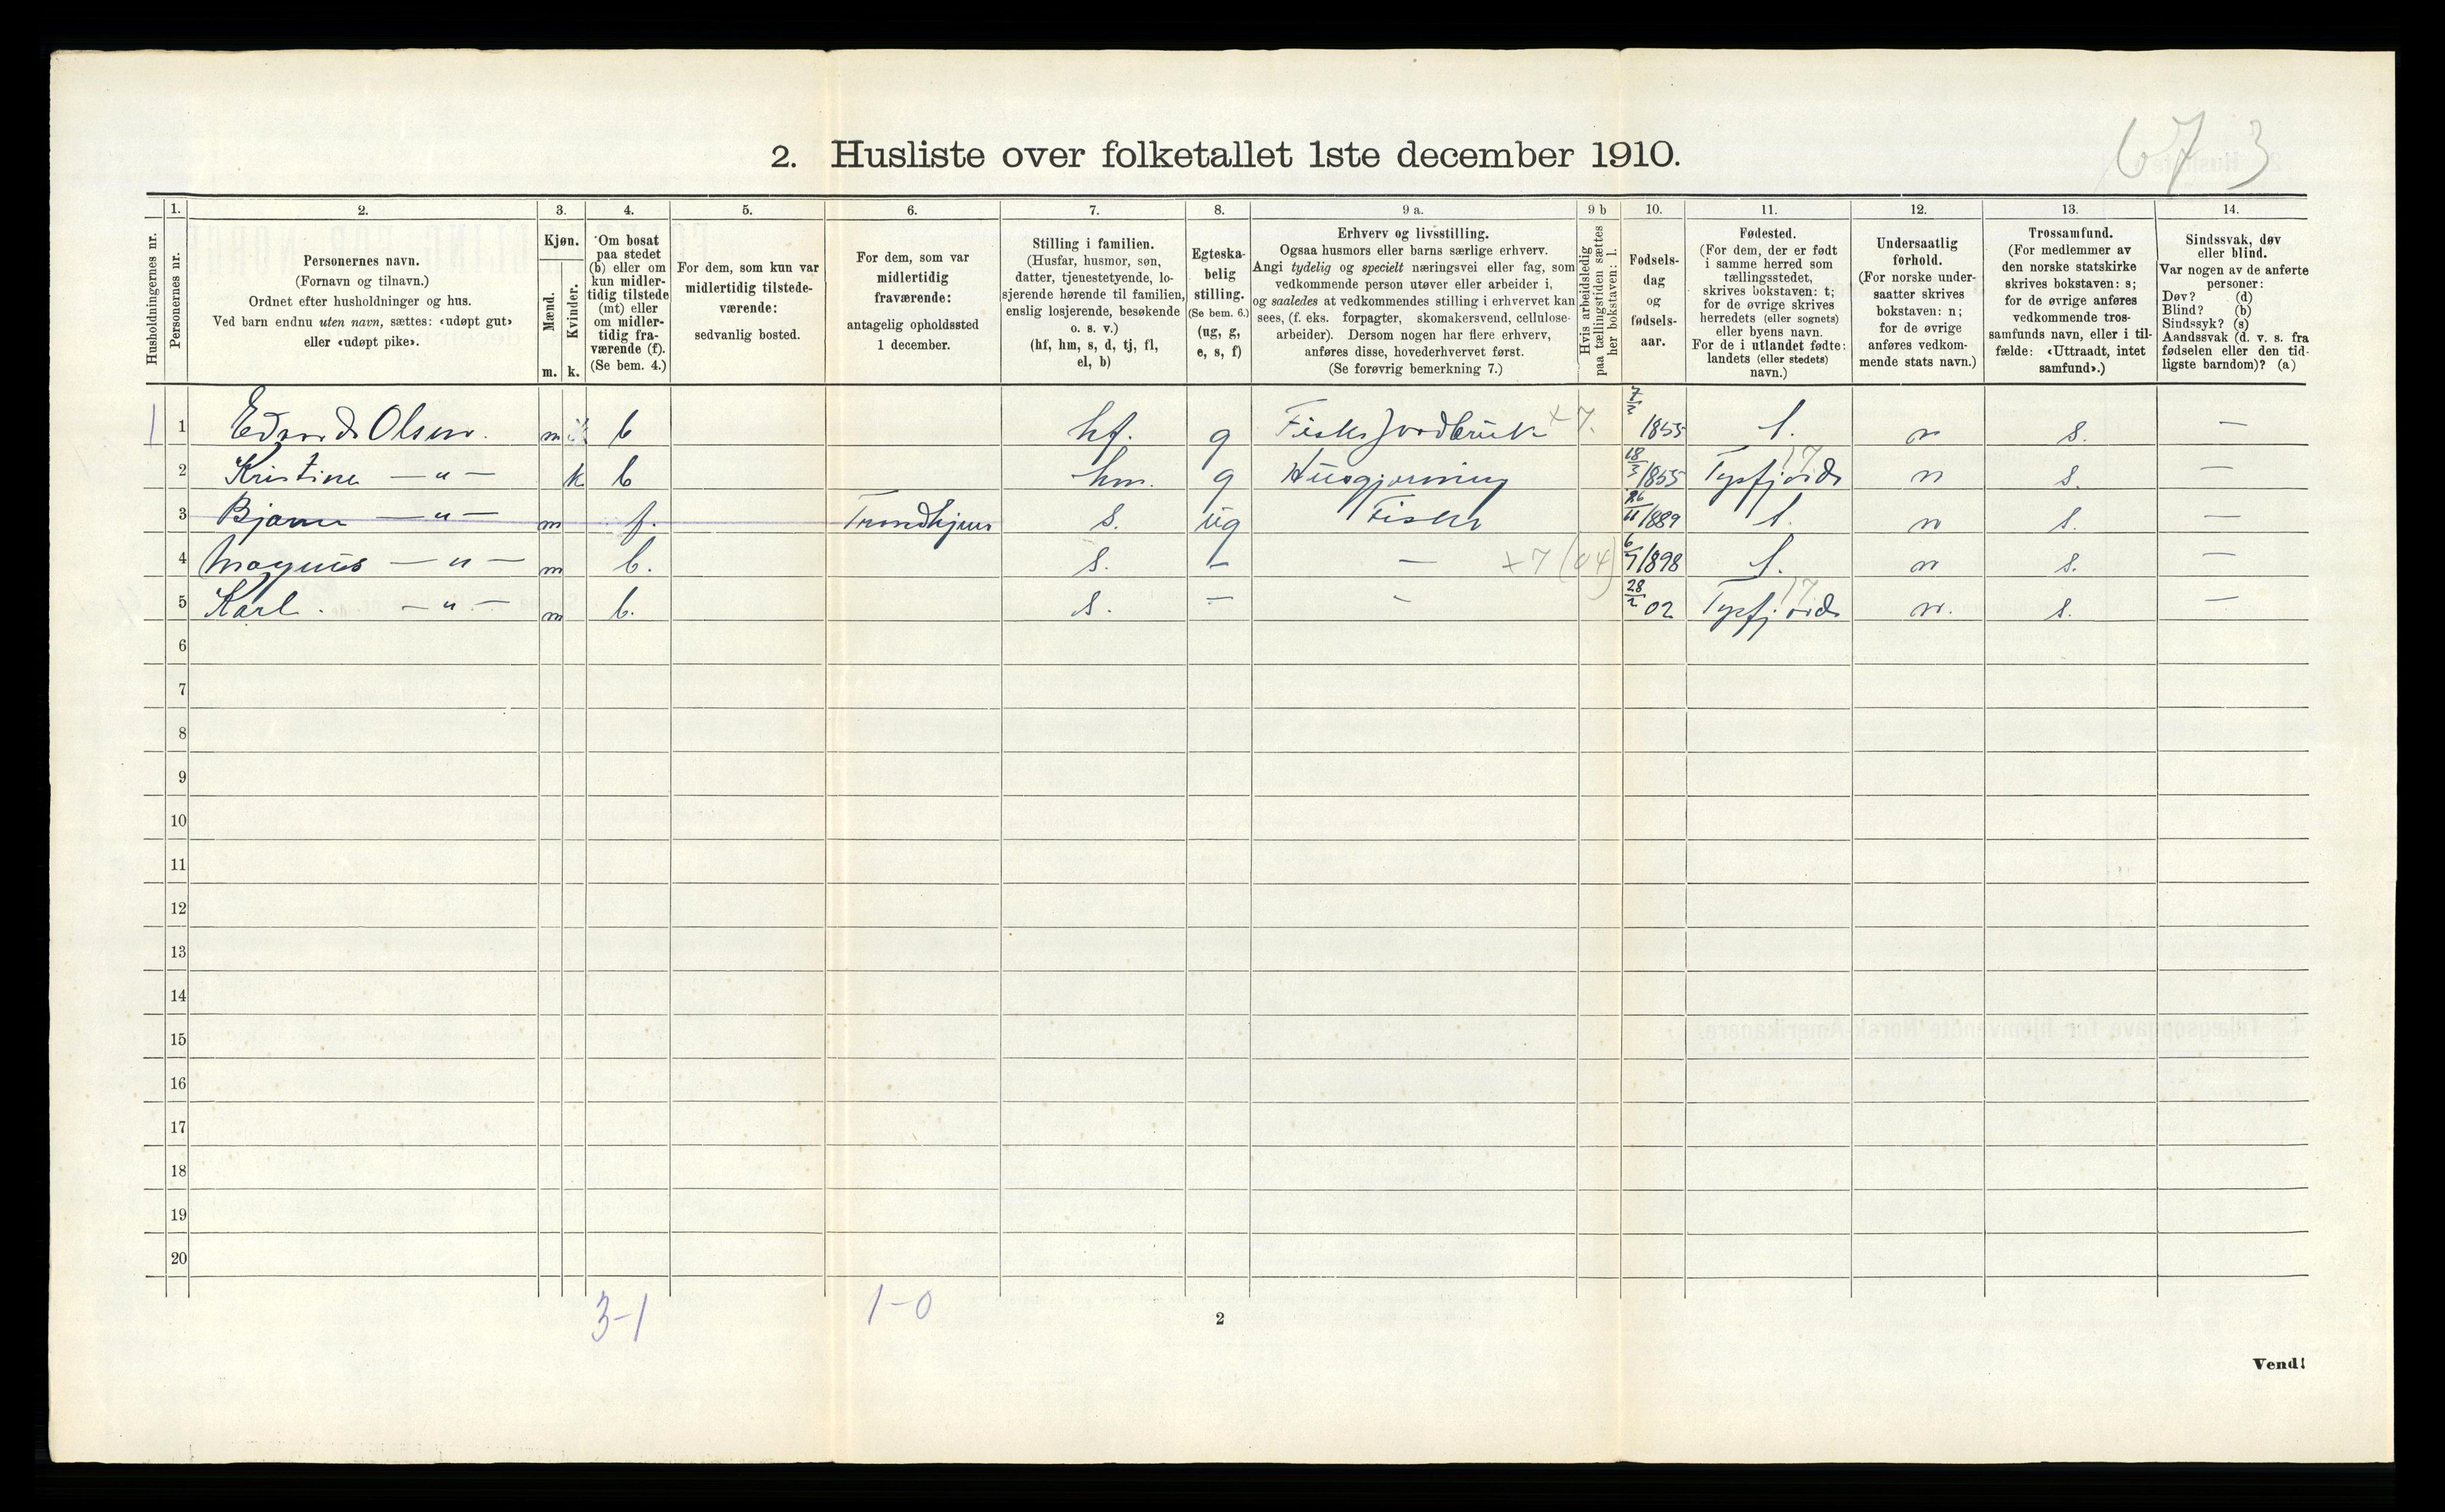 673
2. Husliste over folketallet 1ste december 1910.
Husholdningernes nr.
1.
Personernes nr.
2.
Personernes navn.
(Fornavn og tilnavn.)
Ordnet efter husholdninger og hus.
Ved barn endnu uten navn, sættes: «udøpt gut»
eller «udøpt pike».
3.
Kjøn.
Mænd.
Kvinder.
m. k.
4.
Om bosat
paa stedet
(b) eller om
kun midler-
tidig tilstede
(mt) eller
om midler-
tidig fra-
værende (f).
(Se bem. 4.)
5.
For dem, som kun var
midlertidig tilstede-
værende:
sedvanlig bosted.
6.
For dem, som var
midlertidig
fraværende:
antagelig opholdssted
1 december.
7.
Stilling i familien.
(Husfar, husmor, søn,
datter, tjenestetyende, lo-
sjerende hørende til familien,
enslig losjerende, besøkende
o. s. v.)
(hf, hm, s, d, tj, fl,
el, b)
8.
Egteska-
belig
stilling.
(Se bem. 6.)
(ug, g,
e, s, f)
9 a.
Erhverv og livsstilling.
Ogsaa husmors eller barns særlige erhverv.
Angi tydelig og specielt næringsvei eller fag, som
vedkommende person utøver eller arbeider i,
og saaledes at vedkommendes stilling i erhvervet kan
sees, (f. eks. forpagter, skomakersvend, cellulose-
arbeider). Dersom nogen har flere erhverv,
anføres disse, hovederhvervet først.
(Se forøvrig bemerkning 7.)
9 b
Hvis arbeidsledig
paa tællingstiden sættes
her bokstaven: l.
10.
Fødsels-
dag
og
fødsels-
aar.
11.
Fødested.
(For dem, der er født
i samme herred som
tællingsstedet,
skrives bokstaven: t;
for de øvrige skrives
herredets (eller sognets)
eller byens navn.
For de i utlandet fødte:
landets (eller stedets)
navn.)
12.
Undersaatlig
forhold.
(For norske under-
saatter skrives
bokstaven: n;
for de øvrige
anføres vedkom-
mende stats navn.)
13.
Trossamfund.
(For medlemmer av
den norske statskirke
skrives bokstaven: s;
for de øvrige anføres
vedkommende tros-
samfunds navn, eller i til-
fælde: «Uttraadt, intet
samfund».)
14.
Sindssvak, døv
eller blind.
Var nogen av de anførte
personer:
Døv? (d)
Blind? (b)
Sindssyk? (s)
Aandssvak (d. v. s. fra
fødselen eller den tid-
ligste barndom)? (a)
1 1 Edvard Olsen. m b hf. g Fisker Jordbruk x7. 7/2 1855 t. n s. —
2 Kristine — " — k b hm. g Husgjerning 18/3 1855 Tysfjord 17 n s. —
3 Bjarne — " — m f. Trondhjem s. ug Fisker 26/11 1889 t. n s. —
4 Magnus — " — m b. s. — — x7 (04) 6/7 1898 t. n s. —
5 Karl. — " — m b. s. — — 28/2 02 Tysfjord 17 n. s. —
6
7
8
9
10
11
12
13
14
15
16
17
18
19
20
3-1 1-0
2
Vend!